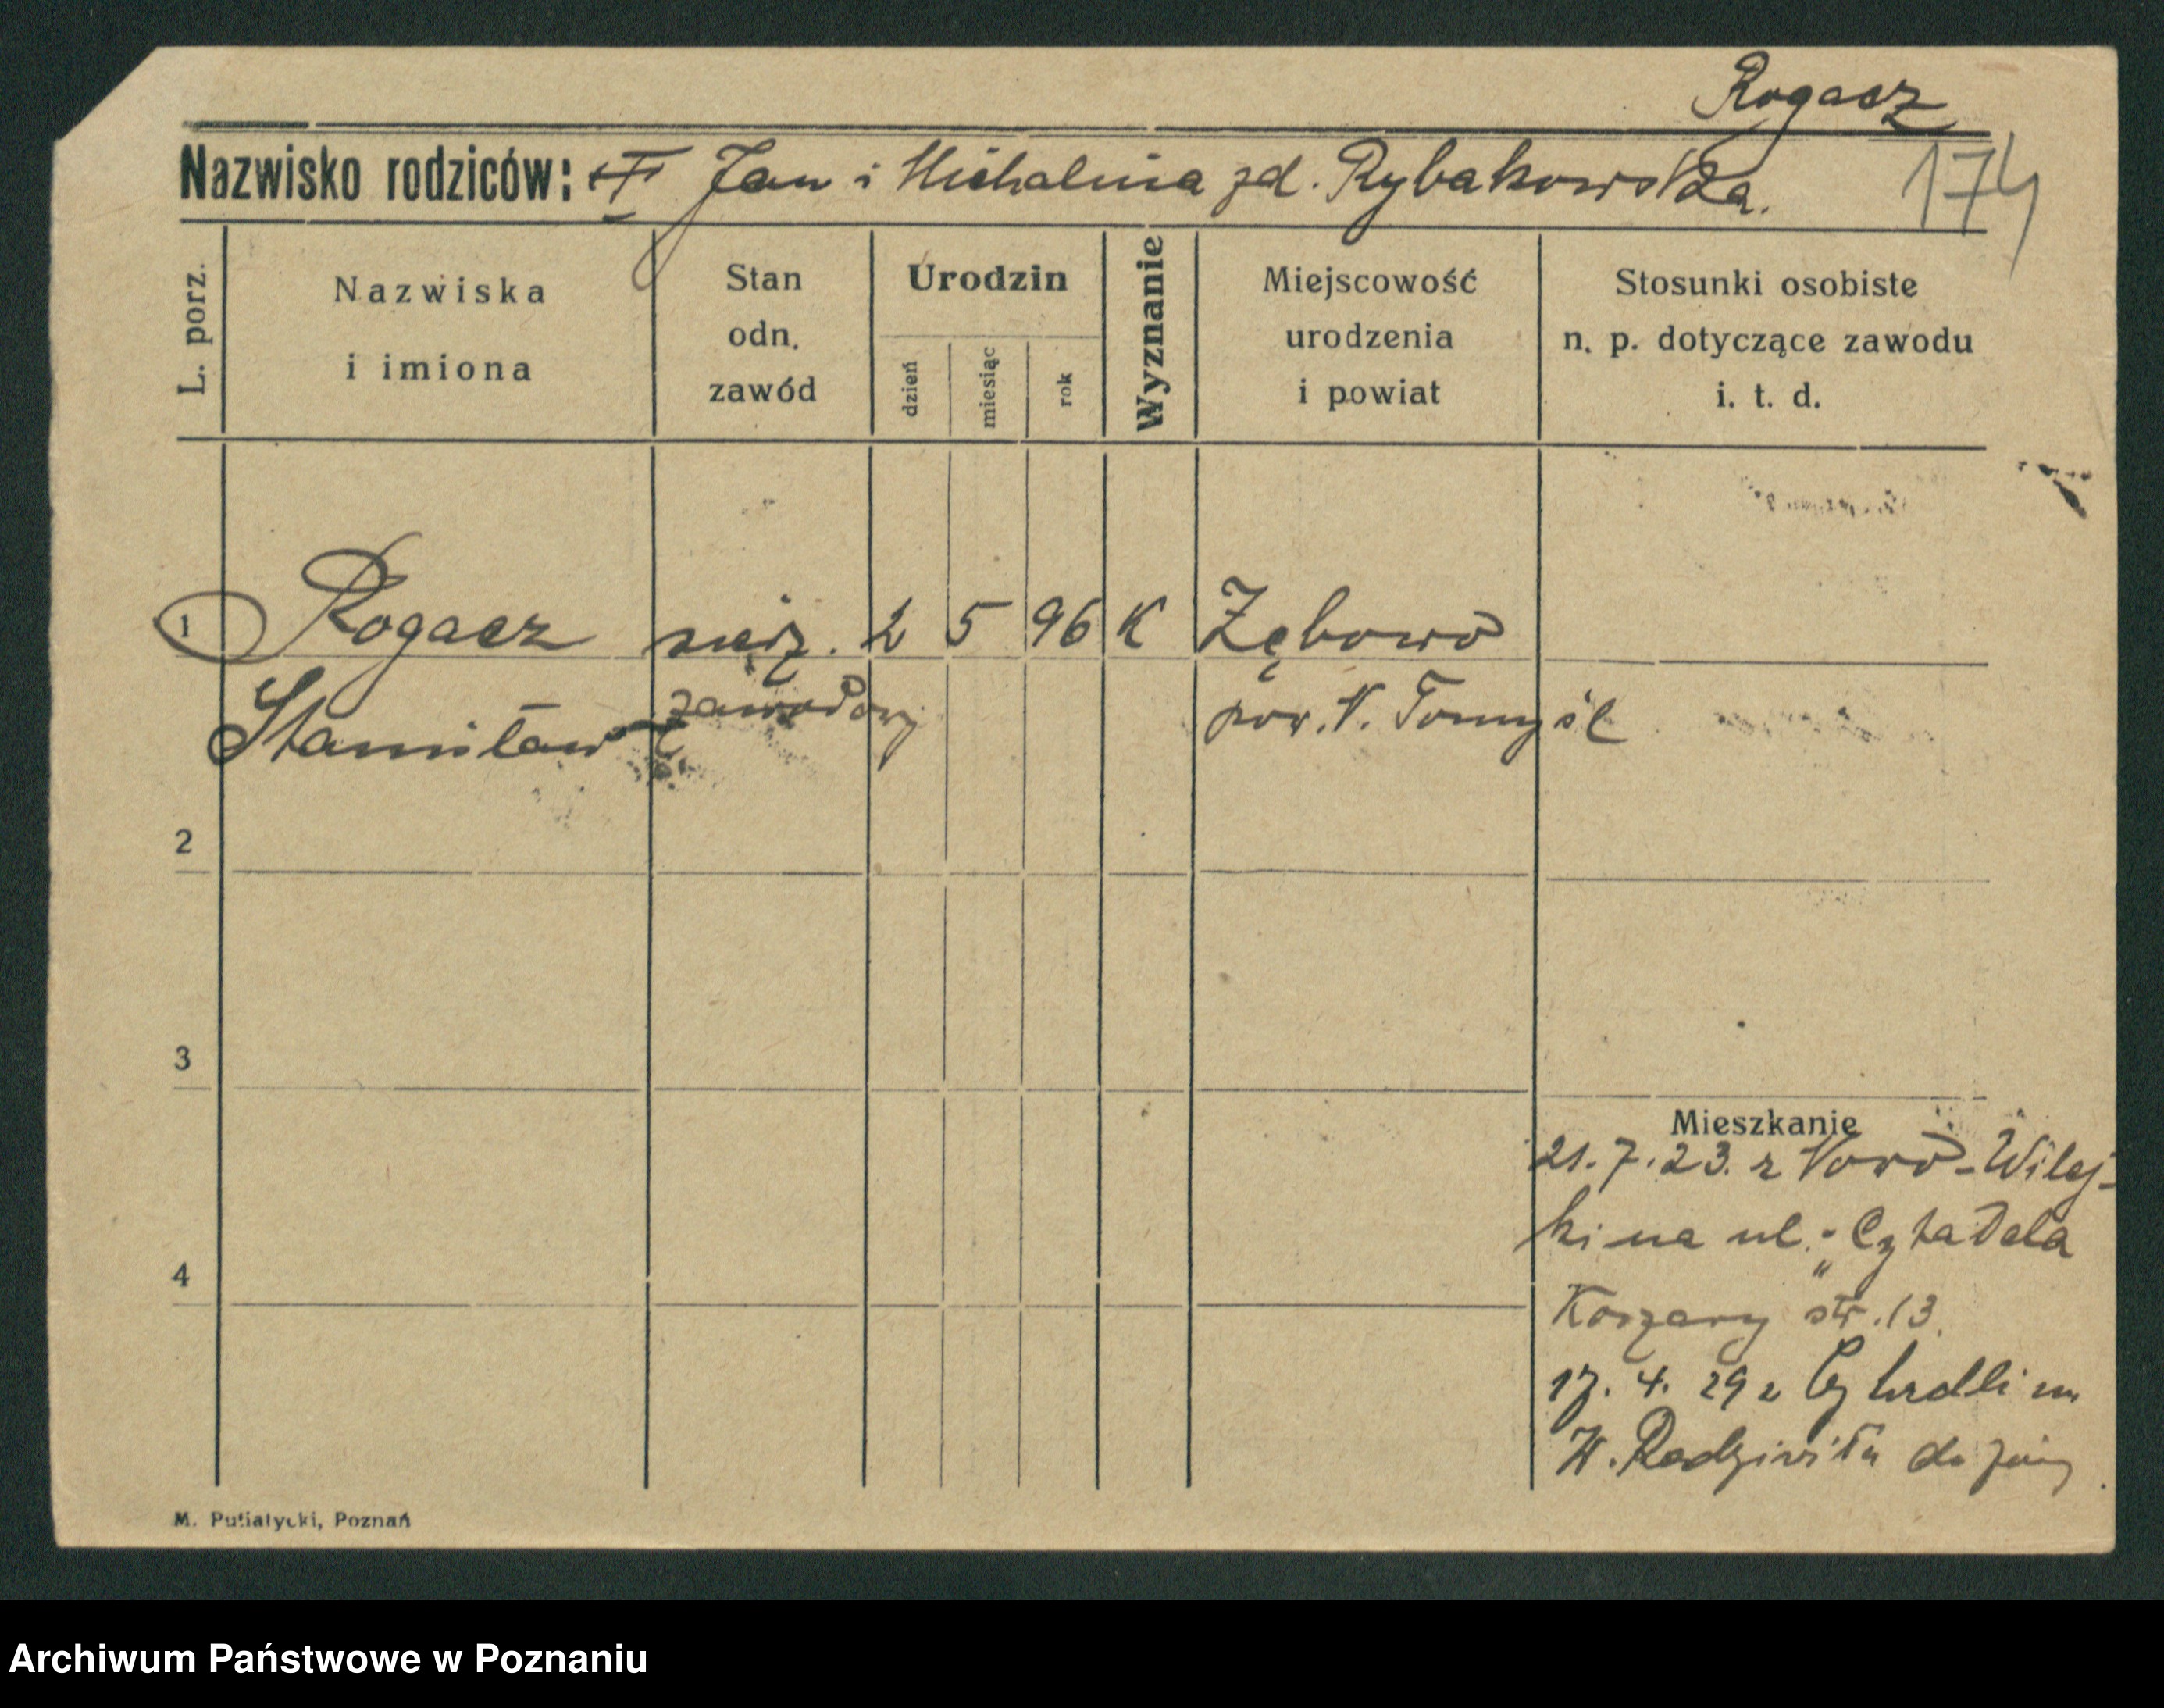 Rogacz
Nazwisko rodziców: Jan i Michalina zd. Rybakowska.
174
L. porz.
Nazwiska
i imiona
Stan
odn.
zawód
Urodzin
dzień
miesiąc
rok
Wyznanie
Miejscowość
urodzenia
i powiat
Stosunki osobiste
n. p. dotyczące zawodu
i. t. d.
1 Rogacz sierż. 2 5 96 K Zębowo
Stanisław zawodowy pow. N. Tomyśl
2
3
4
Mieszkanie
21.7.23. z Nowo-Wilej-
ki na ul. „Cytadela
Koszary str. 13.
17. 4. 29 z Cytadeli
Radziwiłła
M. Putiatycki, Poznań
Archiwum Państwowe w Poznaniu